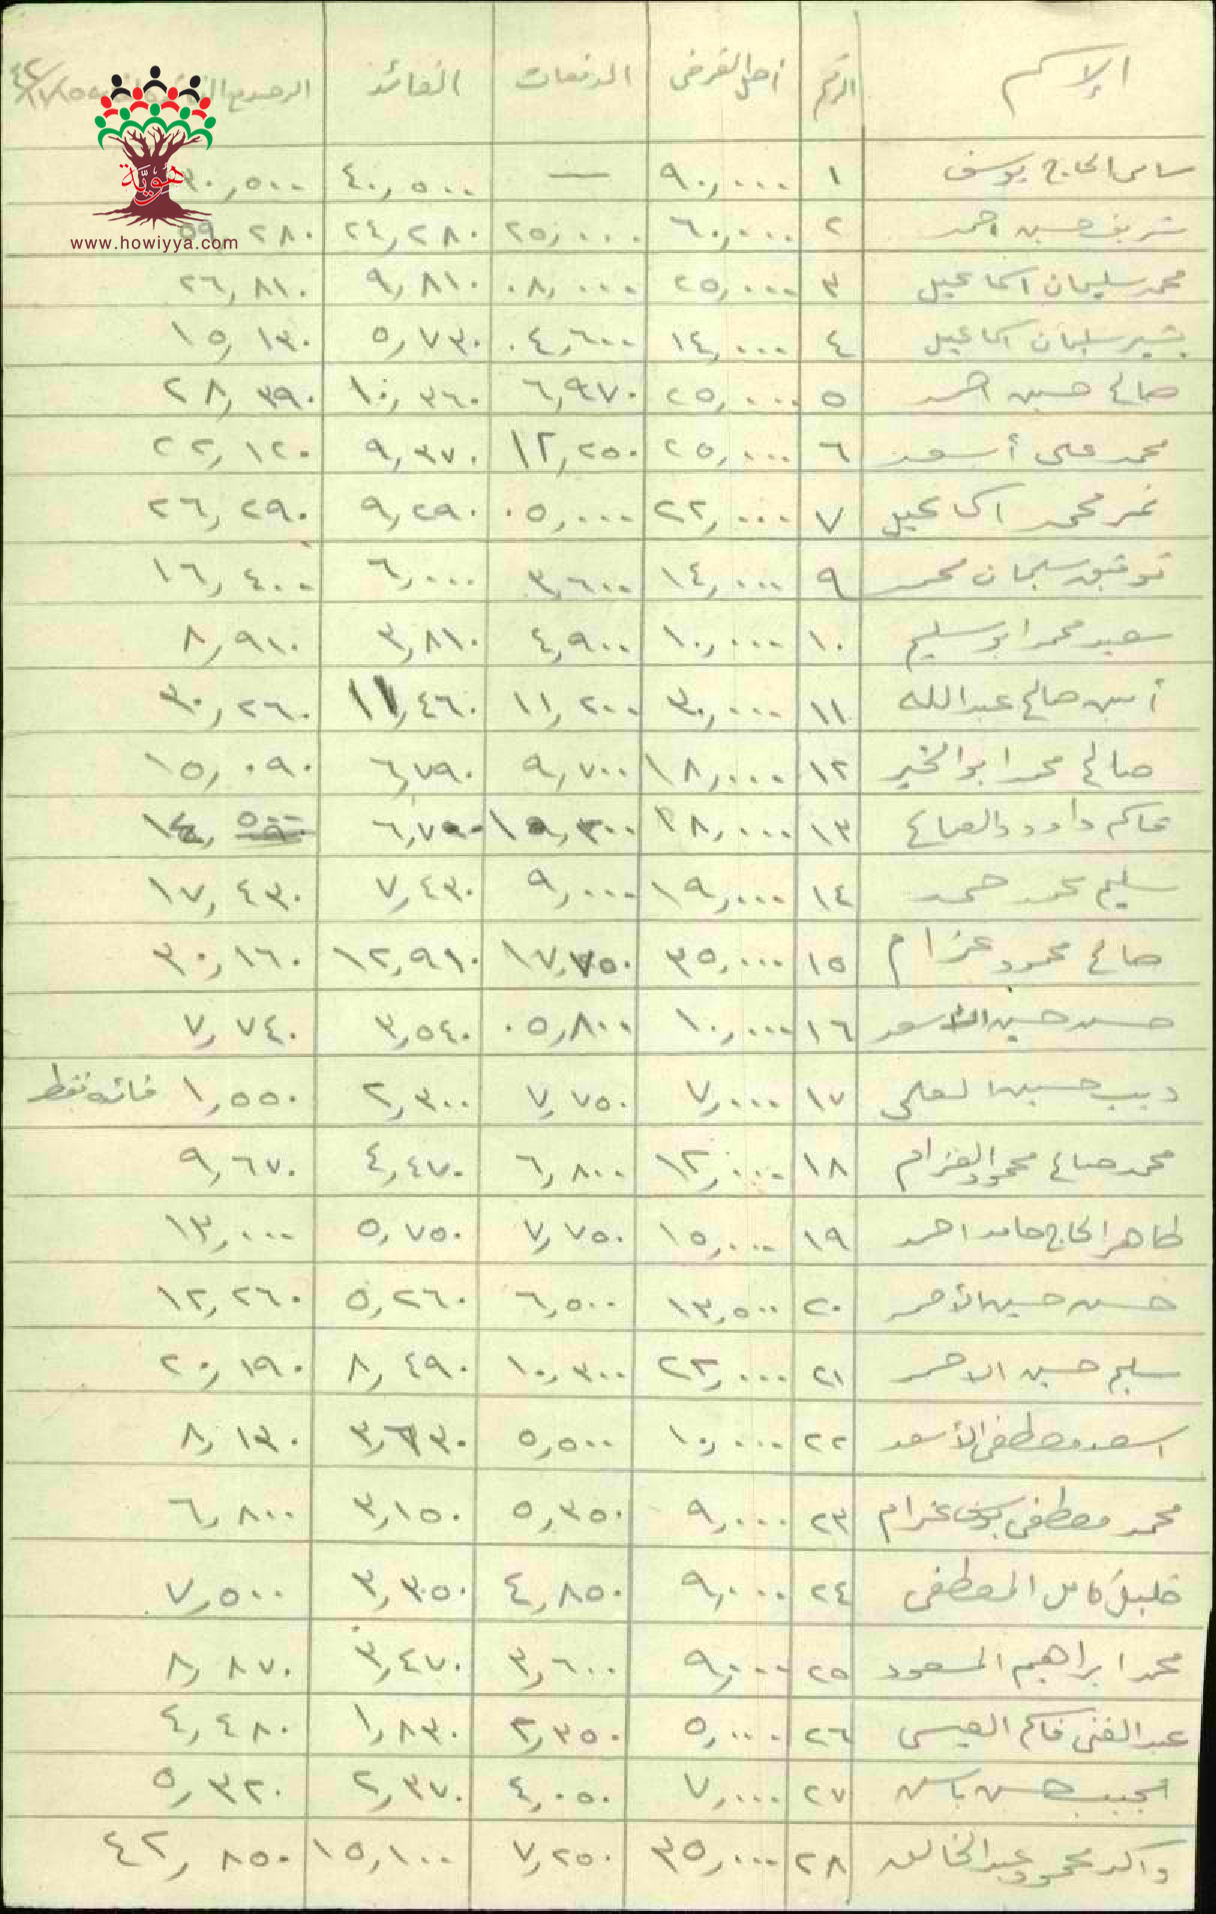 الإسم الرقم أصل القرض الدفعات الفائد الرصيد
هوية
www.howiyya.com
سامي الحاج يوسف ١ ٩٠,٠٠٠ — ٤٠,٥٠٠ ٣٠,٥٠٠
شريف حسين احمد ٢ ٦٠,٠٠٠ ٢٥,٠٠٠ ٢٤,٢٨٠ ٥٩,٢٨٠
محمد سليمان اسماعيل ٣ ٢٥,٠٠٠ ٠٨,٠٠٠ ٩,٨١٠ ٢٦,٨١٠
بشير سليمان اسماعيل ٤ ١٤,٠٠٠ ٠٤,٦٠٠ ٥,٧٣٠ ١٥,١٣٠
صالح حسين احمد ٥ ٢٥,٠٠٠ ٦,٩٧٠ ١٠,٣٦٠ ٢٨,٣٩٠
محمد علي أسعد ٦ ٢٥,٠٠٠ ١٢,٢٥٠ ٩,٣٧٠ ٢٢,١٢٠
نمر محمد اسماعيل ٧ ٢٢,٠٠٠ ٠٥,٠٠٠ ٩,٢٩٠ ٢٦,٢٩٠
توفيق سليمان محمد ٩ ١٤,٠٠٠ ٣,٦٠٠ ٦,٠٠٠ ١٦,٤٠٠
سعيد محمد ابو سليم ١٠ ١٠,٠٠٠ ٤,٩٠٠ ٣,٨١٠ ٨,٩١٠
أمين صالح عبدالله ١١ ٣٠,٠٠٠ ١١,٢٠٠ ١١,٤٦٠ ٣٠,٢٦٠
صالح محمد ابو الخير ١٢ ١٨,٠٠٠ ٩,٧٠٠ ٦,٧٩٠ ١٥,٠٩٠
داوود ١٣ ١٨,٠٠٠
سليم محمد حمد ١٤ ١٩,٠٠٠ ٩,٠٠٠ ٧,٤٣٠ ١٧,٤٣٠
صالح محمود عزام ١٥ ٣٥,٠٠٠ ١٧,٧٥٠ ١٢,٩١٠ ٣٠,١٦٠
حسن حسين الأسعد ١٦ ١٠,٠٠٠ ٠٥,٨٠٠ ٣,٥٤٠ ٧,٧٤٠
ديب حسين العلي ١٧ ٧,٠٠٠ ٧,٧٥٠ ٢,٣٠٠ ١,٥٥٠ فائده فقط
محمد صالح محمود العزام ١٨ ١٢,٠٠٠ ٦,٨٠٠ ٤,٤٧٠ ٩,٦٧٠
طاهر الحاج حامد احمد ١٩ ١٥,٠٠٠ ٧,٧٥٠ ٥,٧٥٠ ١٣,٠٠٠
حسن حسين الأحمد ٢٠ ١٣,٥٠٠ ٦,٥٠٠ ٥,٢٦٠ ١٢,٢٦٠
سليم حسين الاحمد ٢١ ٢٢,٠٠٠ ١٠,٣٠٠ ٨,٤٩٠ ٢٠,١٩٠
اسعد مصطفى الأسعد ٢٢ ١٠,٠٠٠ ٥,٥٠٠ ٣,٦٣٠ ٨,١٣٠
محمد مصطفى يوسف عزام ٢٣ ٩,٠٠٠ ٥,٣٥٠ ٣,١٥٠ ٦,٨٠٠
خليل كامل المصطفى ٢٤ ٩,٠٠٠ ٤,٨٥٠ ٣,٣٥٠ ٧,٥٠٠
محمد ابراهيم المسعود ٢٥ ٩,٠٠٠ ٣,٦٠٠ ٣,٤٧٠ ٨,٨٧٠
عبد الغني العيسى ٢٦ ٥,٠٠٠ ٢,٣٥٠ ١,٨٣٠ ٤,٤٨٠
حسن ياسين ٢٧ ٧,٠٠٠ ٤,٠٥٠ ٢,٣٧٠ ٥,٣٢٠
محمود عبد الخالق ٢٨ ٣٥,٠٠٠ ٧,٢٥٠ ١٥,١٠٠ ٤٢,٨٥٠